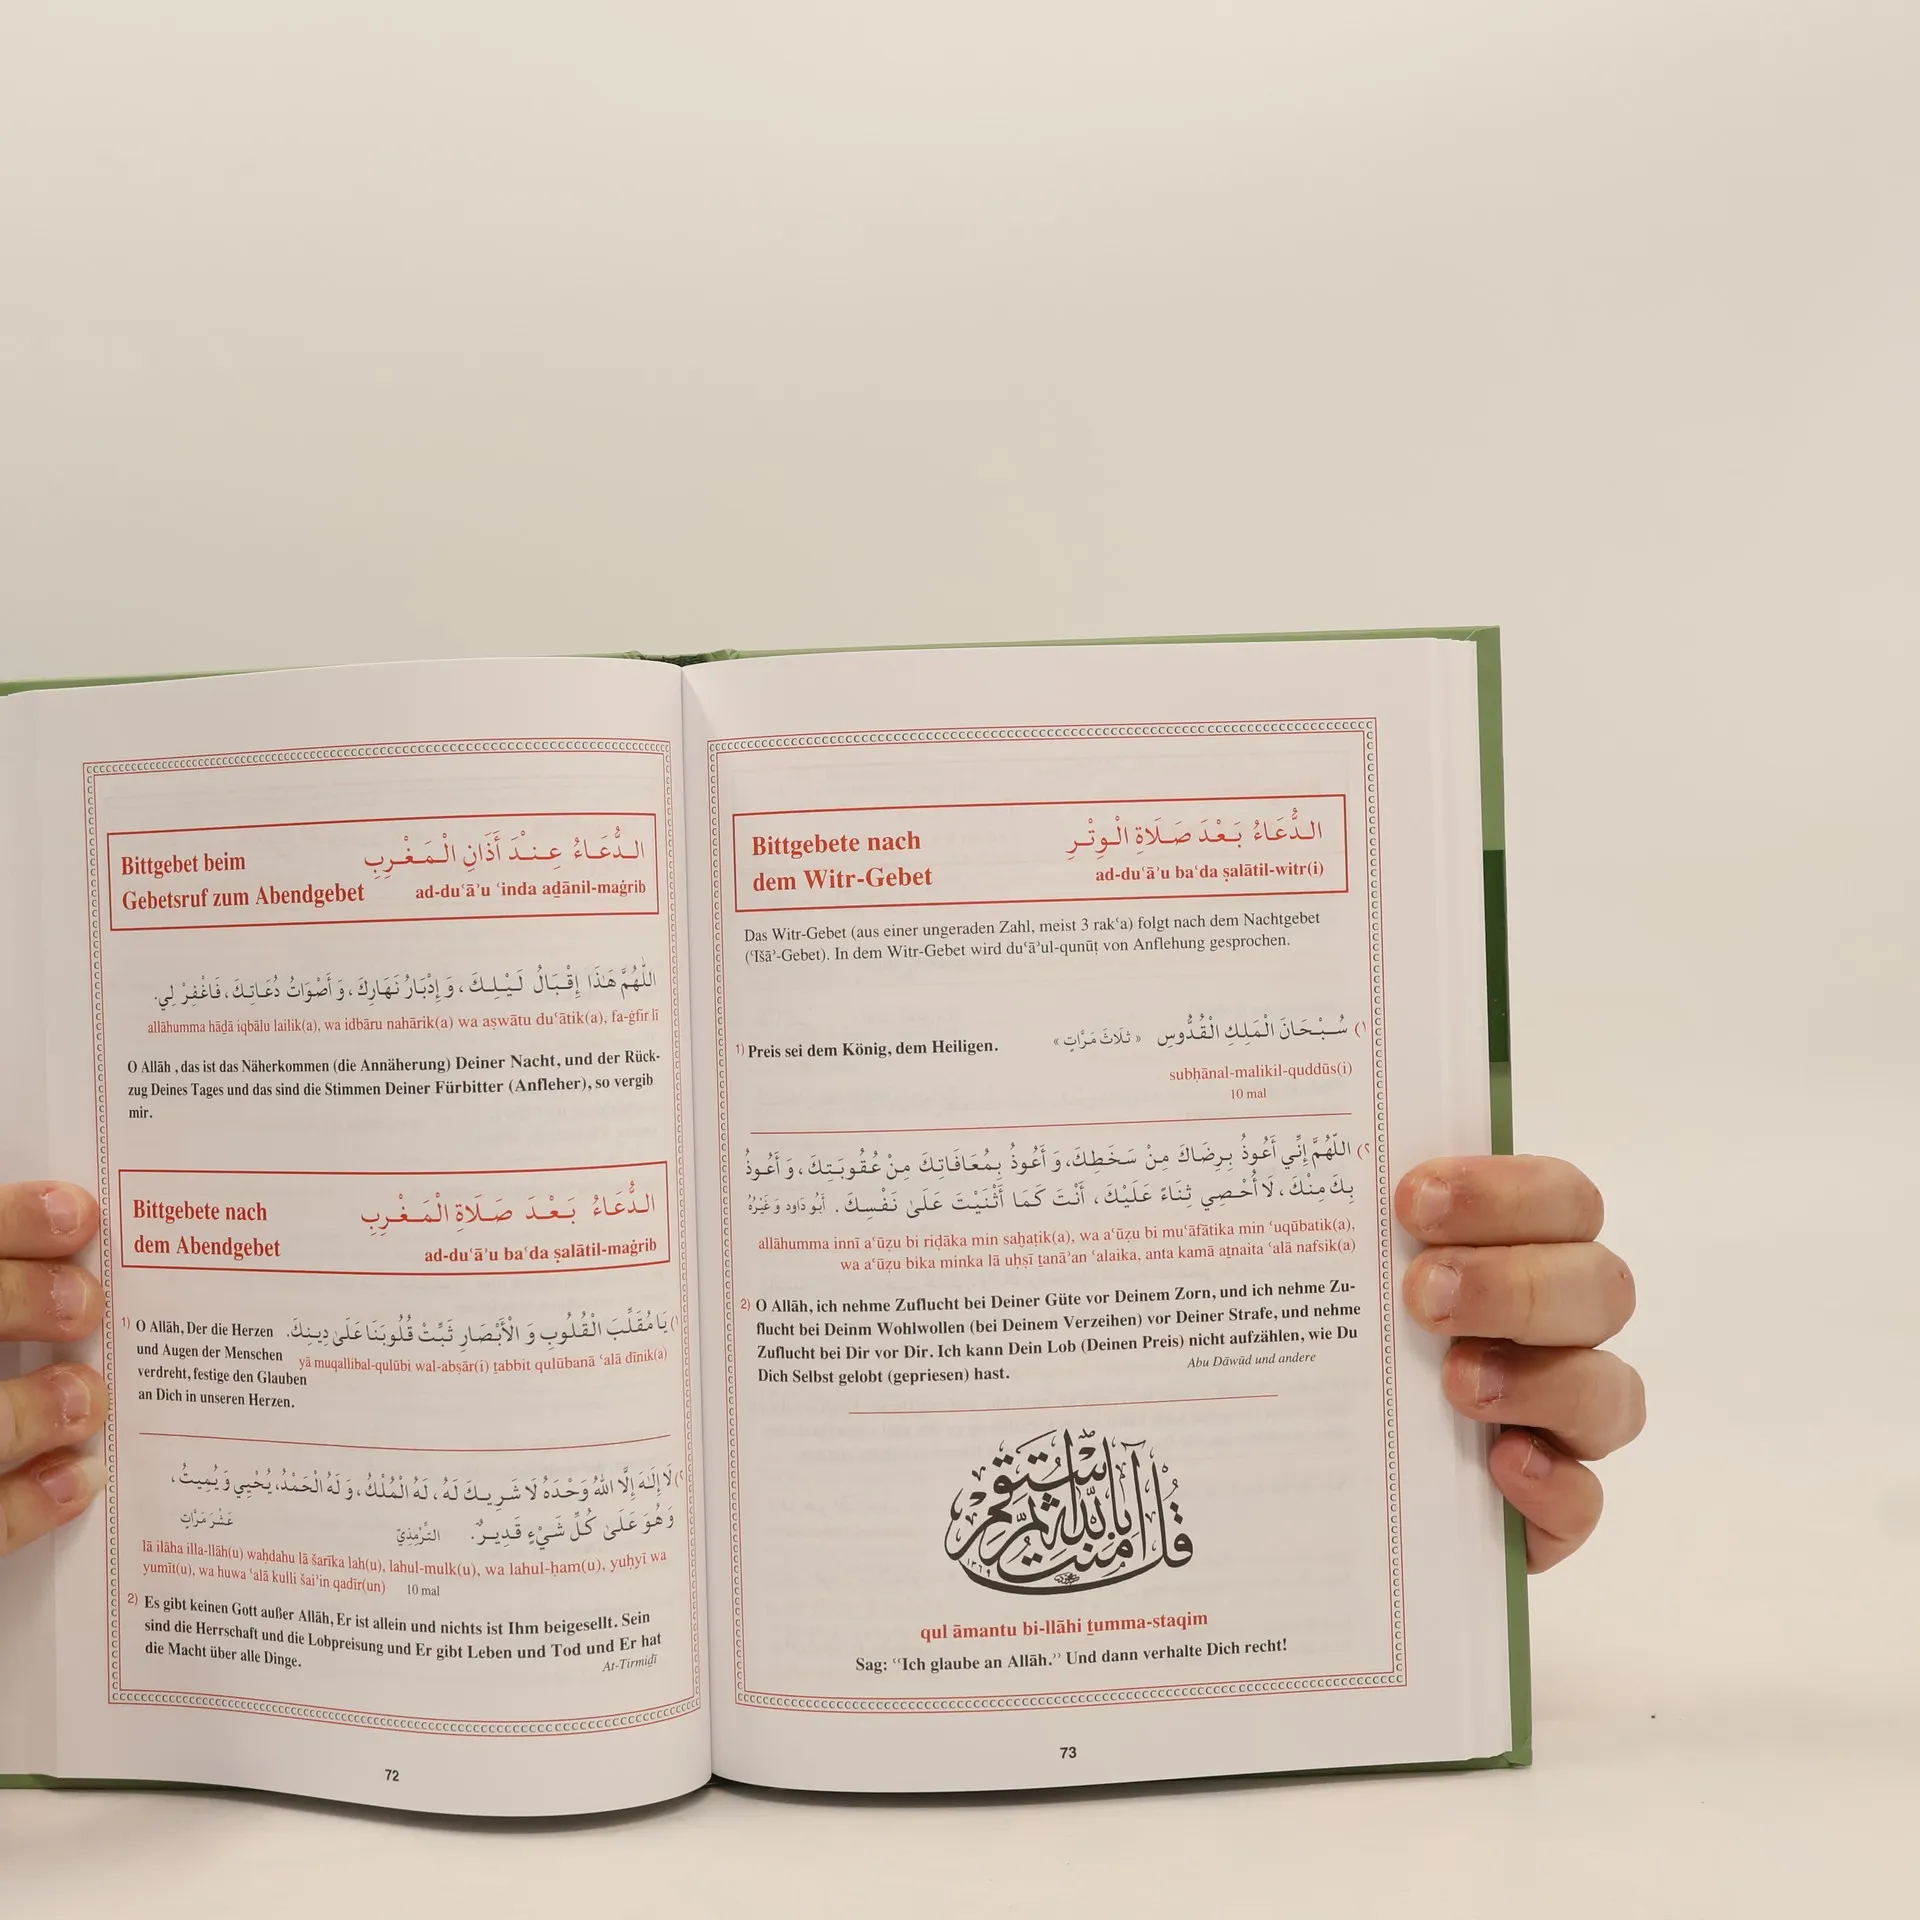 Bittgebet beim
Gebetsruf zum Abendgebet
الدُّعَاءُ عِنْدَ أَذَانِ الْمَغْرِبِ
ad-duʿāʾu ʿinda aḏānil-maġrib
اللّٰهُمَّ هَذَا إِقْبَالُ لَيْلِكَ، وَإِدْبَارُ نَهَارِكَ، وَأَصْوَاتُ دُعَاتِكَ، فَاغْفِرْ لِي.
allāhumma hāḏā iqbālu lailik(a), wa idbāru nahārik(a) wa aṣwātu duʿātik(a), fa-ġfir lī
O Allāh , das ist das Näherkommen (die Annäherung) Deiner Nacht, und der Rück-
zug Deines Tages und das sind die Stimmen Deiner Fürbitter (Anfleher), so vergib
mir.
Bittgebete nach
dem Abendgebet
الدُّعَاءُ بَعْدَ صَلَاةِ الْمَغْرِبِ
ad-duʿāʾu baʿda ṣalātil-maġrib
١) يَا مُقَلِّبَ الْقُلُوبِ وَ الْأَبْصَارِ ثَبِّتْ قُلُوبَنَا عَلَىٰ دِينِكَ.
yā muqallibal-qulūbi wal-abṣār(i) ṯabbit qulūbanā ʿalā dīnik(a)
1) O Allāh, Der die Herzen
und Augen der Menschen
verdreht, festige den Glauben
an Dich in unseren Herzen.
٢) لَا إِلَهَ إِلَّا اللهُ وَحْدَهُ لَا شَرِيكَ لَهُ، لَهُ الْمُلْكُ، وَلَهُ الْحَمْدُ، يُحْيِي وَيُمِيتُ،
وَهُوَ عَلَىٰ كُلِّ شَيْءٍ قَدِيرٌ. التِّرْمِذِيّ عَشْرَ مَرَّاتٍ
lā ilāha illa-llāh(u) waḥdahu lā šarīka lah(u), lahul-mulk(u), wa lahul-ḥam(u), yuḥyī wa
yumīt(u), wa huwa ʿalā kulli šaiʾin qadīr(un) 10 mal
2) Es gibt keinen Gott außer Allāh, Er ist allein und nichts ist Ihm beigesellt. Sein
sind die Herrschaft und die Lobpreisung und Er gibt Leben und Tod und Er hat
die Macht über alle Dinge.
At-Tirmiḏī
72
Bittgebete nach
dem Witr-Gebet
الدُّعَاءُ بَعْدَ صَلَاةِ الْوِتْرِ
ad-duʿāʾu baʿda ṣalātil-witr(i)
Das Witr-Gebet (aus einer ungeraden Zahl, meist 3 rakʿa) folgt nach dem Nachtgebet
(ʿIšāʾ-Gebet). In dem Witr-Gebet wird duʿāʾul-qunūṭ von Anflehung gesprochen.
١) سُبْحَانَ الْمَلِكِ الْقُدُّوسِ « ثَلَاثَ مَرَّاتٍ »
1) Preis sei dem König, dem Heiligen.
subḥānal-malikil-quddūs(i)
10 mal
٢) اللّٰهُمَّ إِنِّي أَعُوذُ بِرِضَاكَ مِنْ سَخَطِكَ، وَ أَعُوذُ بِمُعَافَاتِكَ مِنْ عُقُوبَتِكَ، وَ أَعُوذُ
بِكَ مِنْكَ، لَا أُحْصِي ثَنَاءً عَلَيْكَ، أَنْتَ كَمَا أَثْنَيْتَ عَلَىٰ نَفْسِكَ. أَبُو دَاود وَغَيْرُهُ
allāhumma innī aʿūẓu bi riḍāka min saḫaṭik(a), wa aʿūẓu bi muʿāfātika min ʿuqūbatik(a),
wa aʿūẓu bika minka lā uḥṣī ṯanāʾan ʿalaika, anta kamā aṯnaita ʿalā nafsik(a)
2) O Allāh, ich nehme Zuflucht bei Deiner Güte vor Deinem Zorn, und ich nehme Zu-
flucht bei Deinm Wohlwollen (bei Deinem Verzeihen) vor Deiner Strafe, und nehme
Zuflucht bei Dir vor Dir. Ich kann Dein Lob (Deinen Preis) nicht aufzählen, wie Du
Dich Selbst gelobt (gepriesen) hast.
Abu Dāwūd und andere
قُلْ آمَنْتُ بِاللهِ ثُمَّ اسْتَقِمْ
qul āmantu bi-llāhi ṯumma-staqim
Sag: “Ich glaube an Allāh.” Und dann verhalte Dich recht!
73